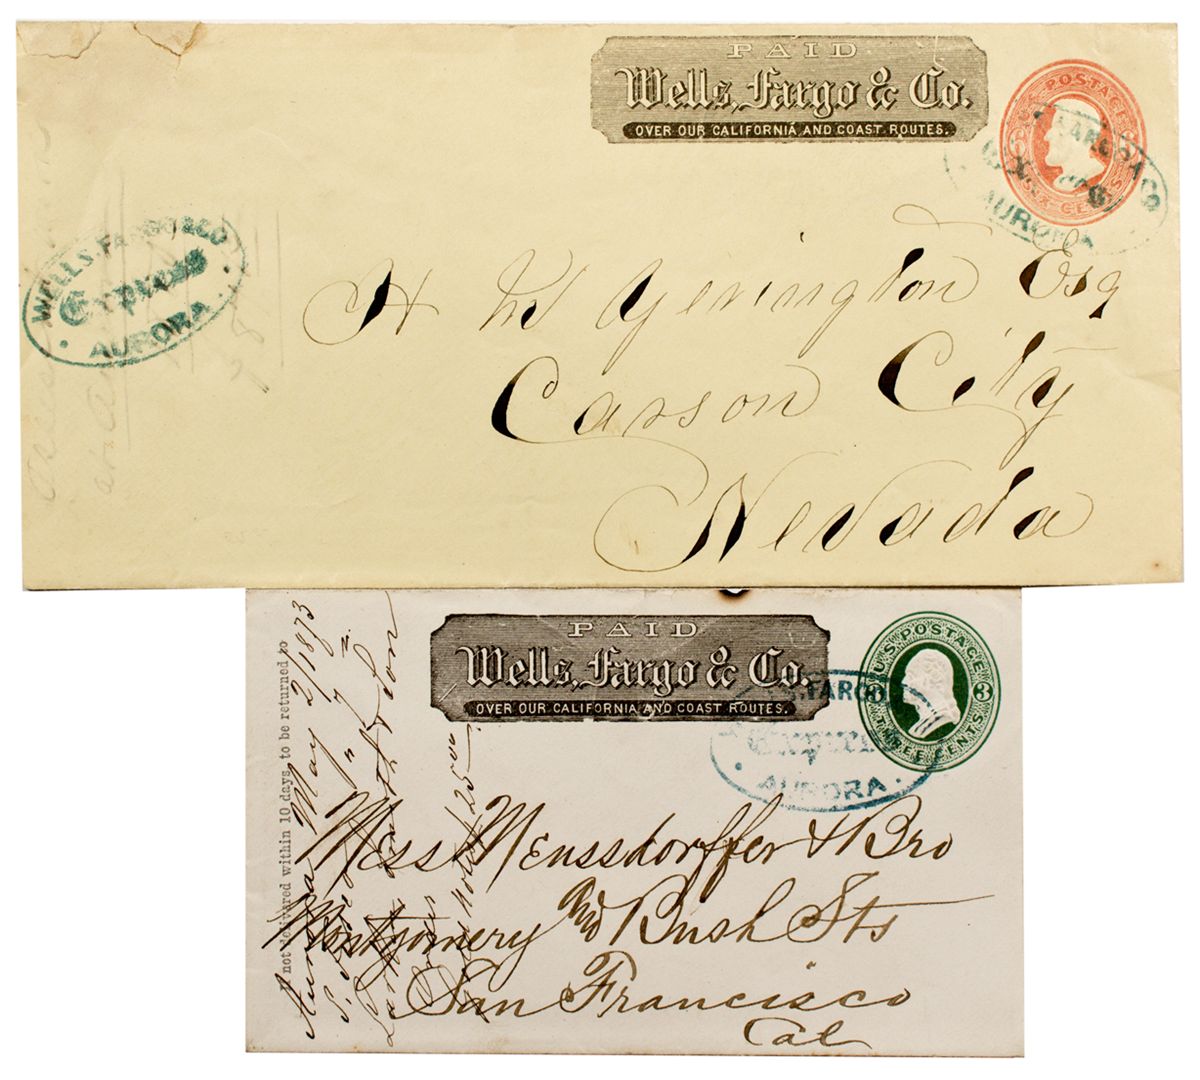 PAID
Wells, Fargo & Co.
OVER OUR CALIFORNIA AND COAST ROUTES.
U.S. POSTAGE
6 6
SIX CENTS
FARGO & CO
AURORA
WELLS, FARGO & CO
Express
AURORA
H M Yerington Esq
Carson City
Nevada
PAID
Wells, Fargo & Co.
OVER OUR CALIFORNIA AND COAST ROUTES.
U.S. POSTAGE
3 3
THREE CENTS
FARGO
Express
AURORA
not delivered within 10 days, to be returned to
Aurora May 2/1873
Mess Meussdorffer & Bro
Montgomery and Bush Sts
San Francisco
Cal